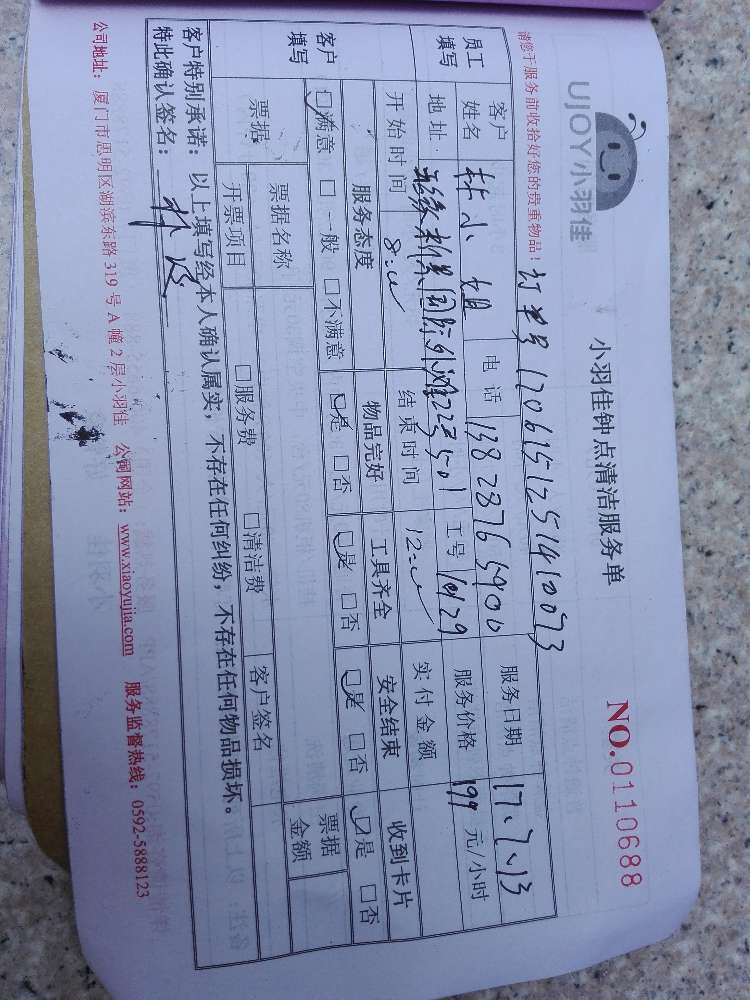 UJOY小羽佳
小羽佳钟点清洁服务单
NO.0110688
请您于服务前收拾好您的贵重物品!
订单号
员工填写 客户姓名 林小姐 电话 服务日期 17.7.13
地址 国际外滩 工号 服务价格 199 元/小时
开始时间 8:00 结束时间 12:00 实付金额
客户填写 服务态度 物品完好 工具齐全 安全结束 收到卡片
☑满意 □一般 □不满意 ☑是 □否 ☑是 □否 ☑是 □否 ☑是 □否
票据 票据名称 客户签名 票据金额
开票项目 □服务费 □清洁费
客户特别承诺:以上填写经本人确认属实,不存在任何纠纷,不存在任何物品损坏。
特此确认签名:
公司地址:厦门市思明区湖滨东路319号A幢2层小羽佳 公司网站:www.xiaoyujia.com 服务监督热线:0592-5888123